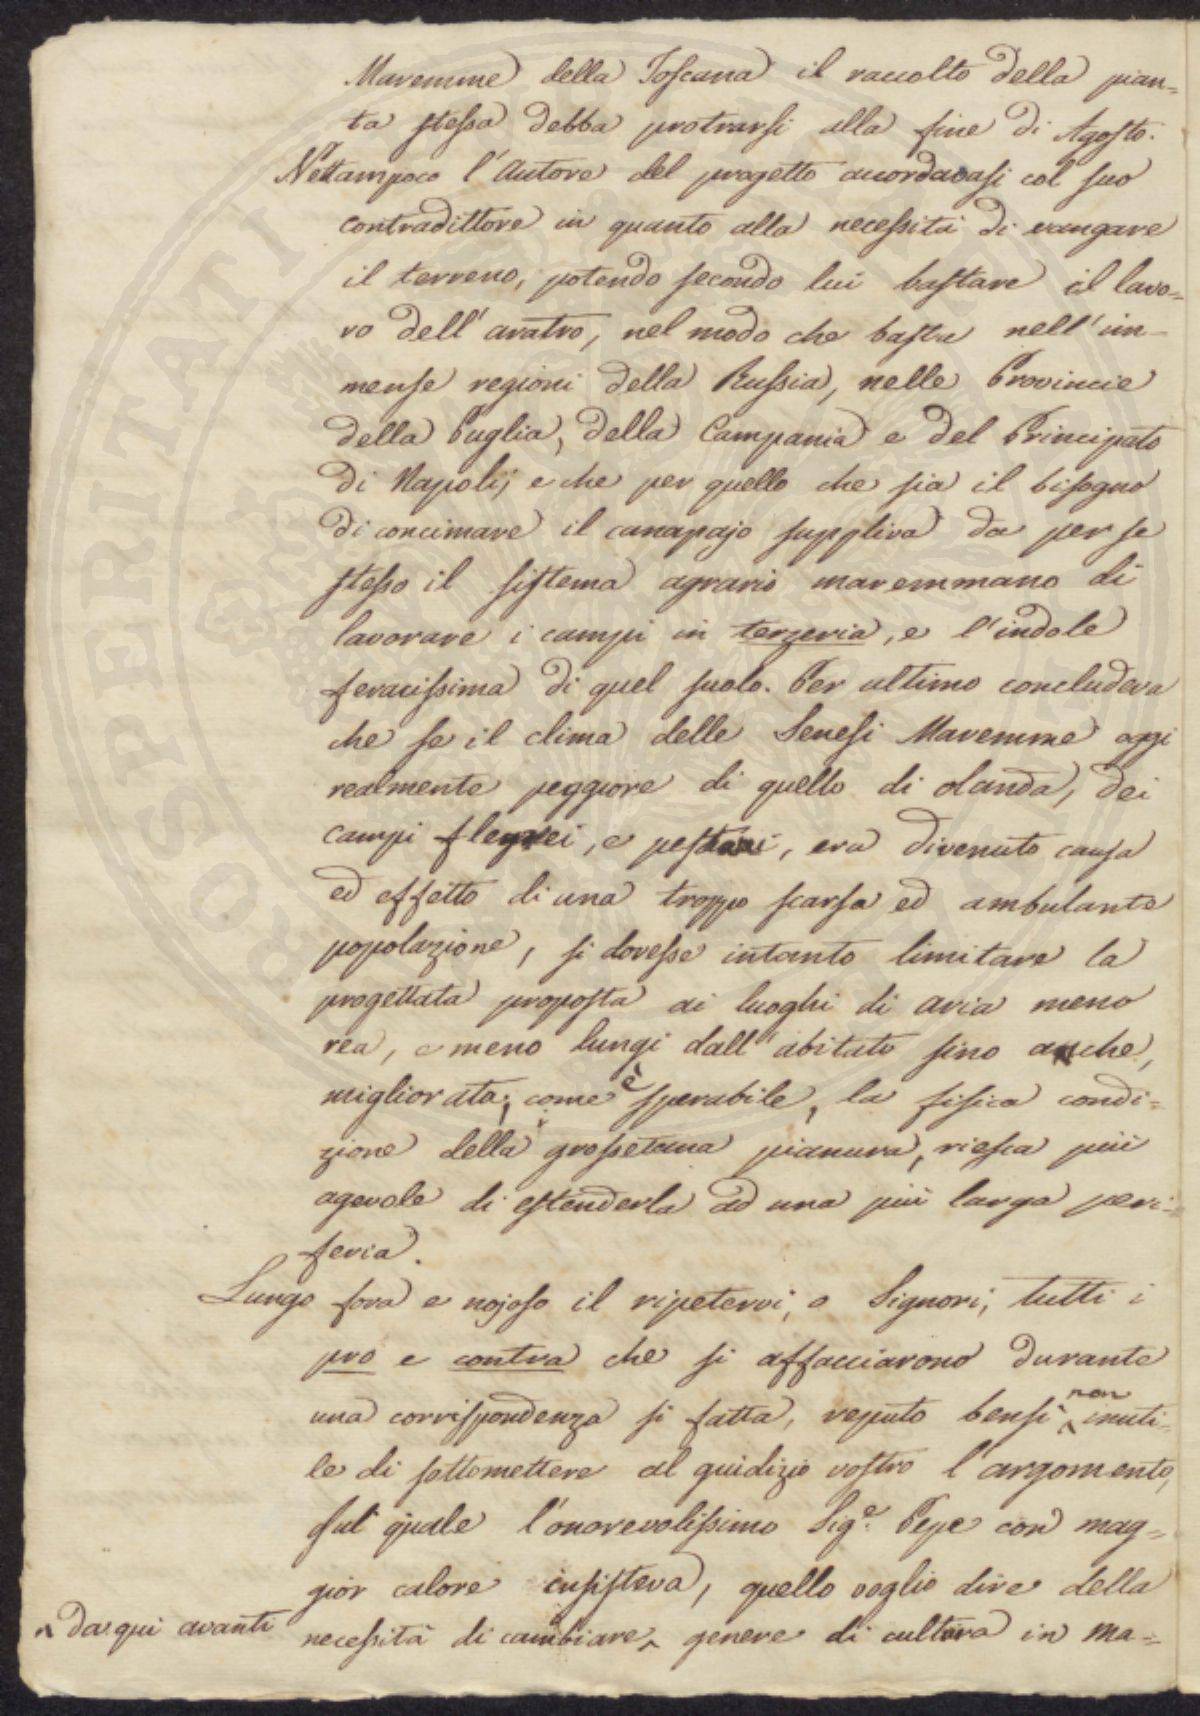 Maremme della Toscana il raccolto della pian=
ta stessa debba protrarsi alla fine di Agosto.
Nettampoco l'Autore del progetto accordavasi col suo
contradittore in quanto alla necessità di vangare
il terreno, potendo secondo lui bastare il lavo=
ro dell'aratro, nel modo che basta nell'im-
mense regioni della Russia, nelle Provincie
della Puglia, della Campania e del Principato
di Napoli; e che per quello che sia il bisogno
di concimare il canapajo suppliva da per se
stesso il sistema agrario maremmano di
lavorare i campi in terzeria, e l'indole
feracissima di quel suolo. Per ultimo concludeva
che se il clima delle Senesi Maremme oggi
realmente peggiore di quello di olanda, dei
campi flegrei, e pestani, era divenuto causa
ed effetto di una troppo scarsa ed ambulante
popolazione, si dovesse intanto limitare la
progettata proposta ai luoghi di aria meno
rea, e meno lungi dall'abitato fino anche,
migliorata, come è sperabile, la fisica condi=
zione della grossetana pianura, riesca più
agevole di estenderla ad una più larga peri=
feria.
Lungo fora e nojoso il ripetervi, o Signori, tutti i
pro e contra che si affacciarono durante
una corrispondenza sì fatta, reputo bensì non inuti=
le di sottomettere al giudizio vostro l'argomento,
sul quale l'onorevolissimo Sig.e Pepe con mag=
gior calore insisteva, quello voglio dire della
necessità di cambiare ^ genere di cultura in Ma=
^ da qui avanti
PROSPERITATI